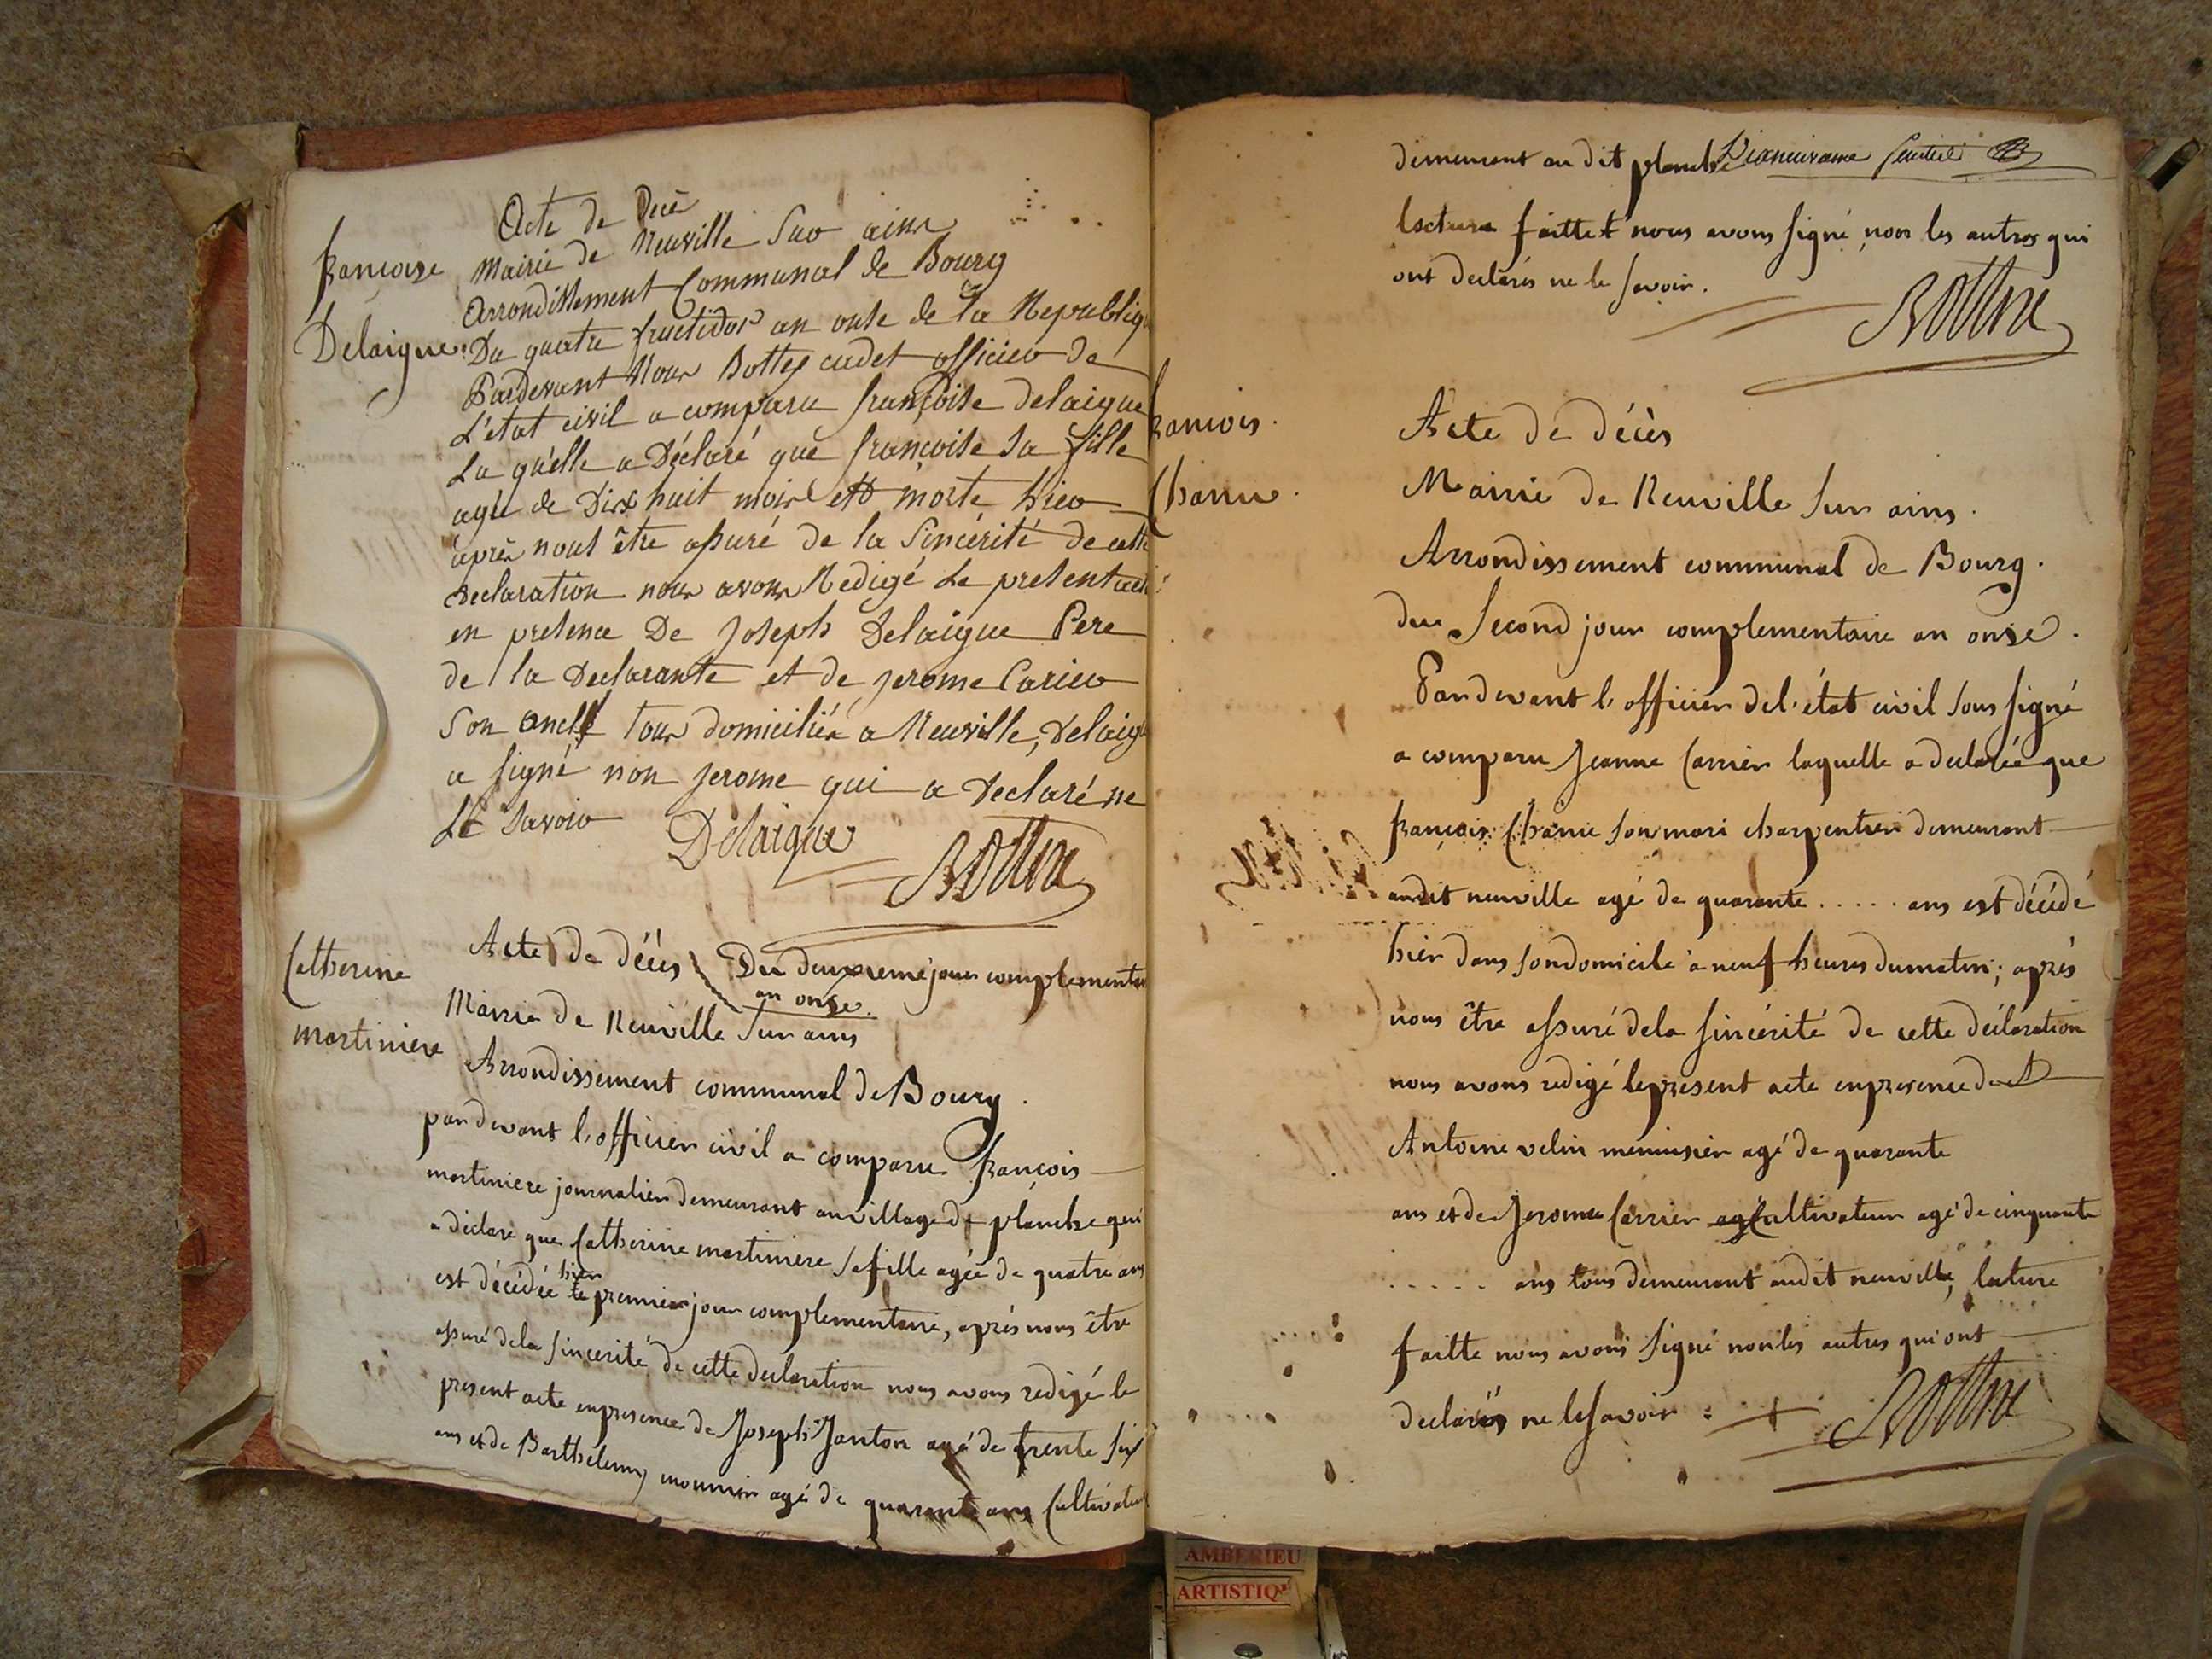 Acte de Decè
Mairie de Neuville Sur ains
françoise
Arrondissement Communal de Bourg
Delaigue
Du quatre fructidor an onse de la Republiq
Pardevant Nous Bottex cadet officier de
L'etat civil a comparu françoise delaigue
La quelle a Déclaré que françoise sa fille
agée de Dix huit mois est morte hier
après nous être assuré de la Sincérité de cette
declaration nous avons Redigé Le present acte
en presence De Joseph Delaigue Pere
de la Declarante et de jerome Carier
Son oncle Tous domiciliés a Neuville, Delaigu
a signé non jerome qui a Declaré ne
Le Savoir
Delaigue
Bottex
Catherine
martiniere
Acte de décès
Du deuxieme jour complementai
an onse.
Mairie de Neuville Sur ains
Arrondissement communal de Bourg.
pardevant l'officier civil a comparu françois
martiniere journalier demeurant au village de planche qui
a déclaré que Catherine martiniere sa fille agée de quatre ans
est décédée hier premier jour complementaire, après nous être
assuré dela sincerité de cette declaration nous avons redigé le
present acte en presence de Joseph Janton agé de trente six
ans et de Barthelemy mounier agé de quarante ans Cultivateur
demeurant au dit planche
lecture faitte nous avons signé non les autres qui
ont declarés ne le savoir.
Bottex
françois.
Chanu.
Acte de décès
Mairie de Neuville Sur ains.
Arrondissement communal de Bourg.
du Second jour complementaire an onse.
Pardevant l'officier del'état civil sous signé
a comparu Jeanne Carrier laquelle a declarée que
françois Chanu son mari charpentier demeurant
audit neuville agé de quarante ..... ans est décédé
hier dans son domicile à neuf heures du matin; après
nous être assuré dela sincérité de cette déclaration
nous avons redigé le present acte en presence de
Antoine velin menuisier agé de quarante
ans et de Jerome Carrier Cultivateur agé de cinquante
..... ans tous demeurant audit neuville, lecture
faitte nous avons signé non les autres qui ont
declarés ne le savoir
Bottex
AMBERIEU
ARTISTIQ